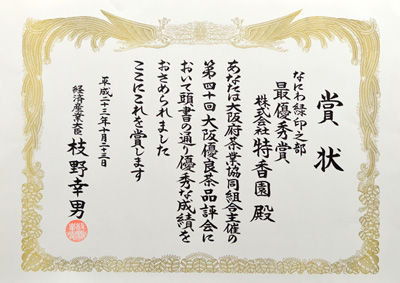 賞状
なにわ緑印之部
最優秀賞
株式会社特香園殿
あなたは大阪府茶業協同組合主催の
第四十回大阪優良茶品評会に
おいて頭書の通り優秀な成績を
おさめられました
ここにこれを賞します
平成二十三年十月二十三日
経済産業大臣 枝野幸男